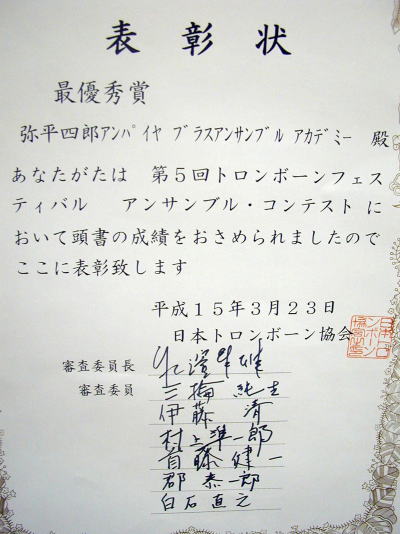 表彰状
最優秀賞
弥平四郎ｱﾝﾊﾟｲﾔ ﾌﾞﾗｽｱﾝｻﾝﾌﾞﾙ ｱｶﾃﾞﾐｰ 殿
あなたがたは 第５回トロンボーンフェス
ティバル アンサンブル・コンテスト に
おいて頭書の成績をおさめられましたので
ここに表彰致します
平成１５年３月２３日
日本トロンボーン協会
審査委員長
審査委員 三輪純生
伊藤 清
村上準一郎
首藤健一
郡 恭一郎
白石直之